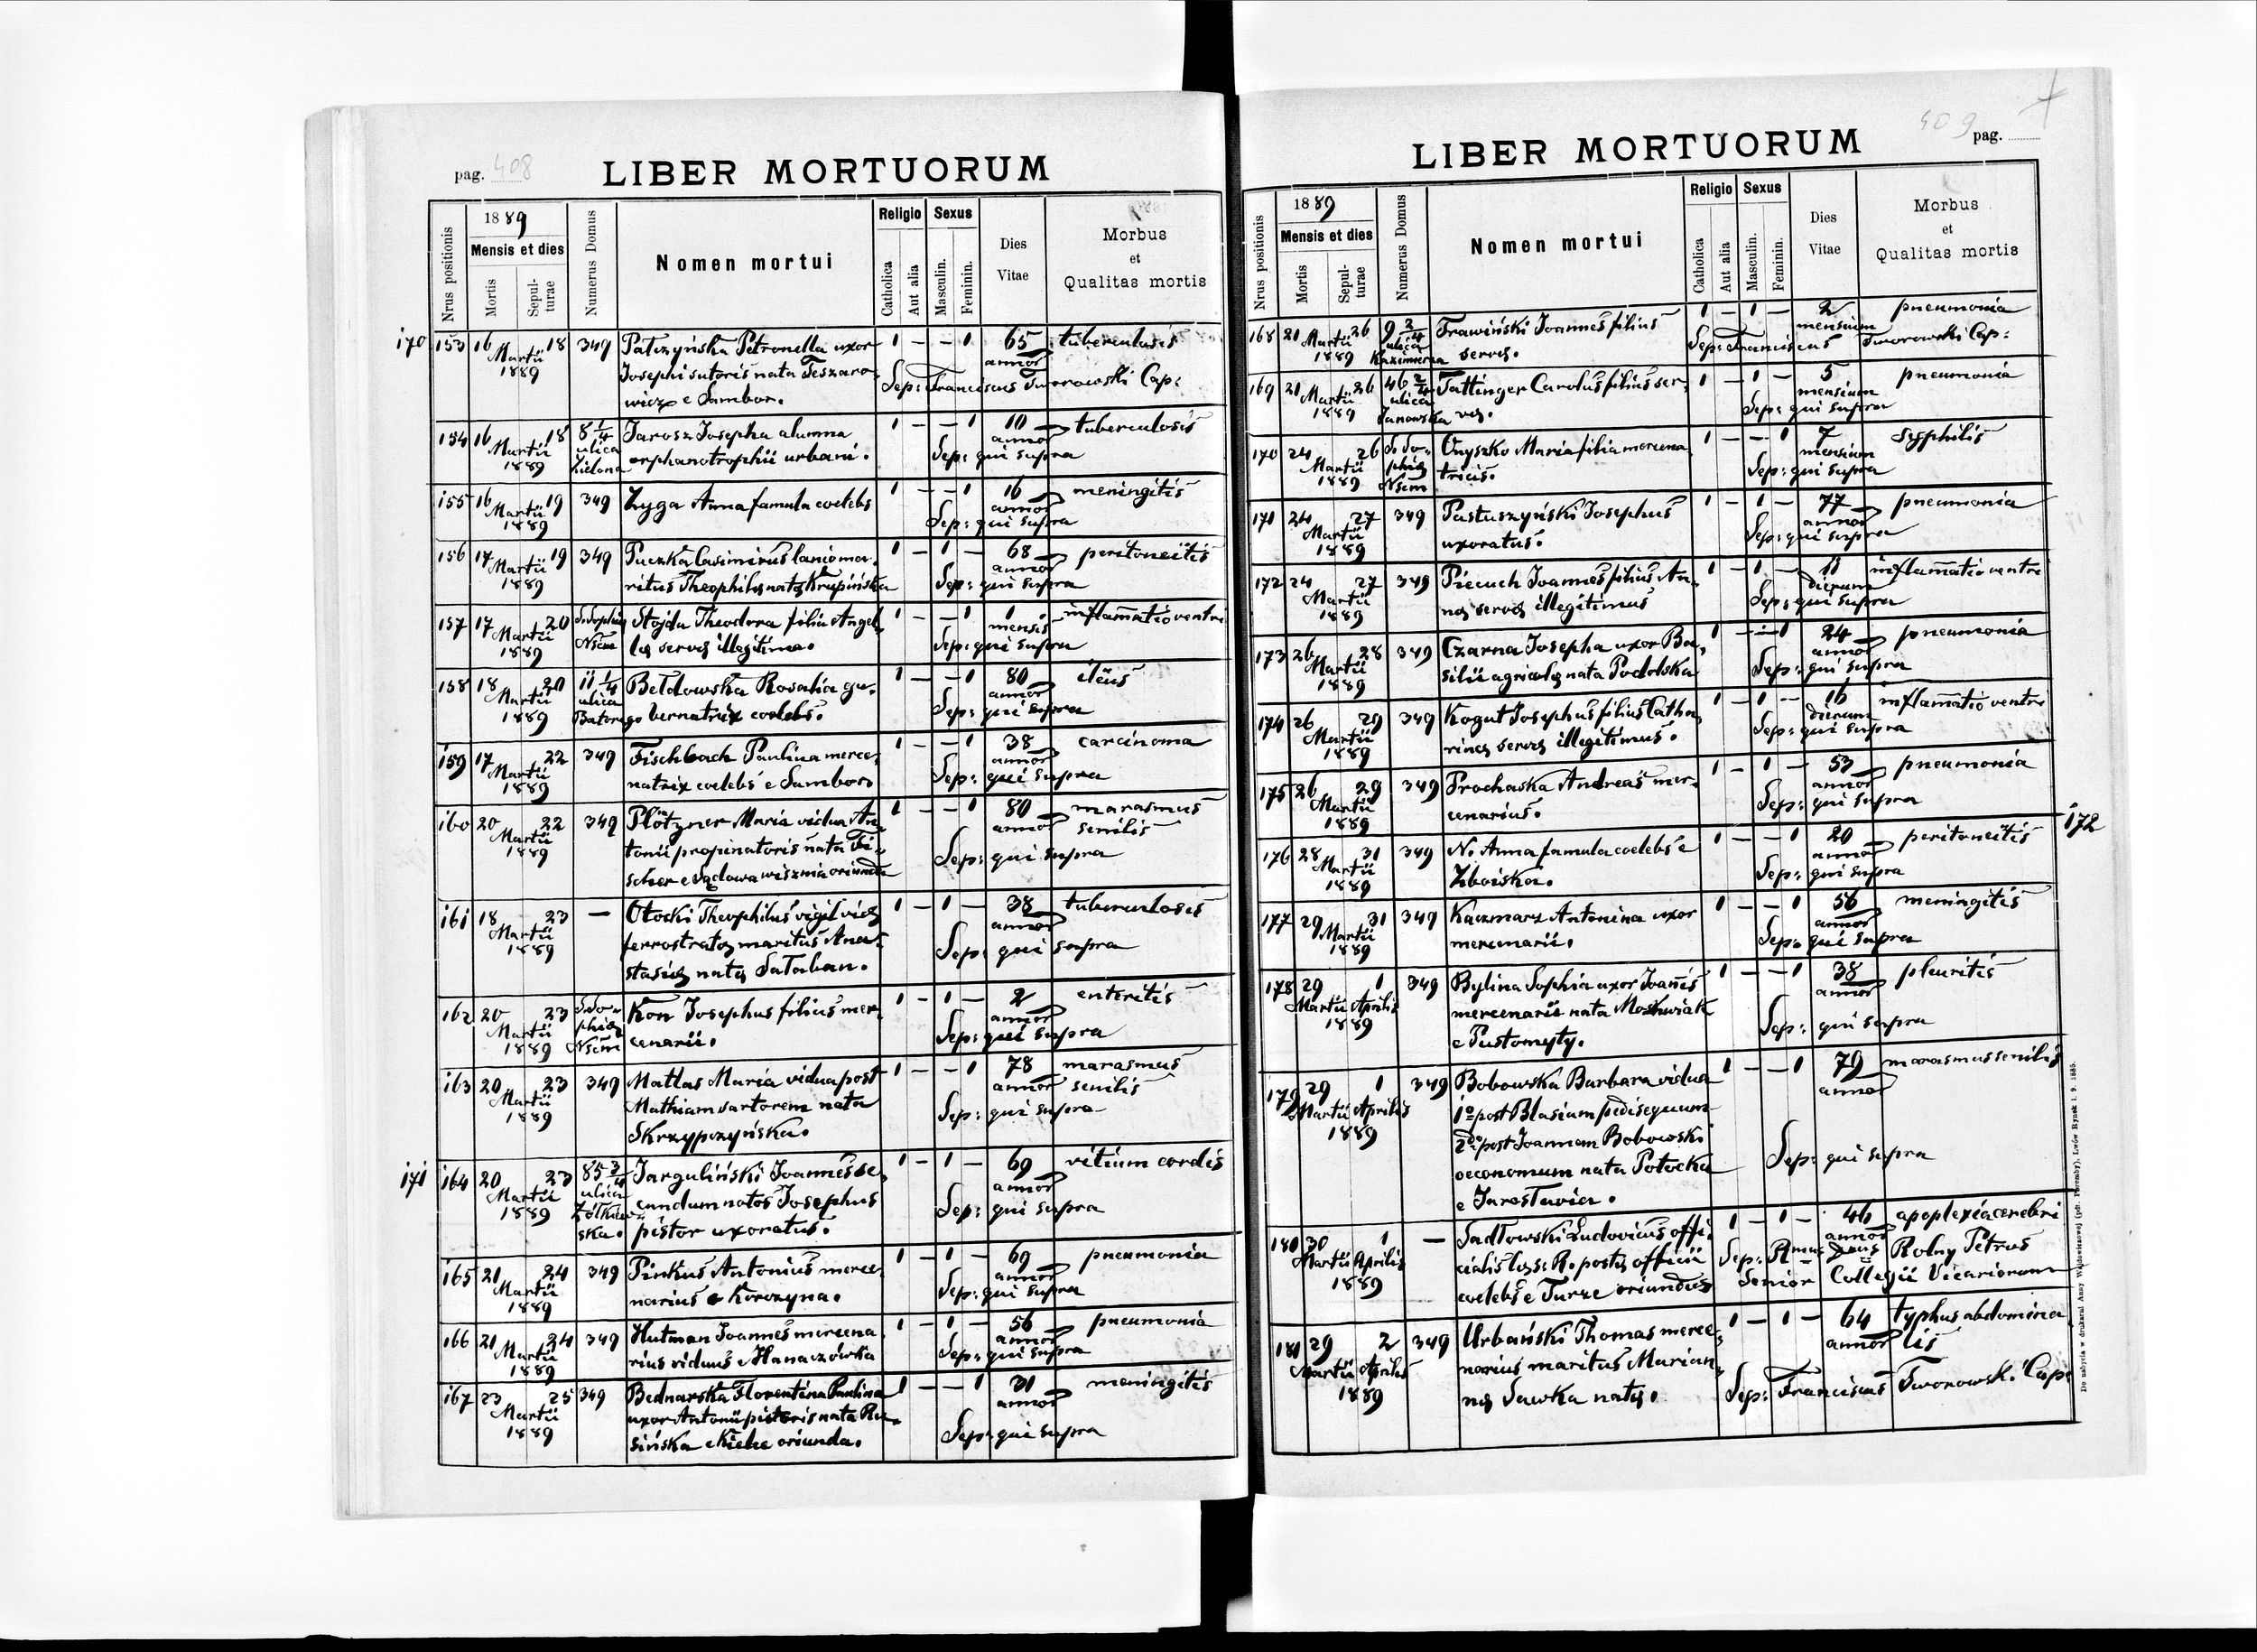 pag. 408
LIBER MORTUORUM
Nrus positionis
1889
Mensis et dies
Mortis
Sepul-
turae
Numerus Domus
Nomen mortui
Religio
Catholica
Aut alia
Sexus
Masculin.
Feminin.
Dies
Vitae
Morbus
et
Qualitas mortis
170 153 16 18 349 Patczyńska Petronella uxor 1 – – 1 65 tuberculosis
Martii Josephi sutoris nata Teszaro annor
1889 wicz e Sambor. Sep: Franciscus Tworowski Cap:
154 16 18 8 1/4 Jarosz Josepha alumna 1 – – 1 10 tuberculosis
Martii ulica orphanotrophii urbani. annor
1889 Zielona Sep: qui supra
155 16 19 349 Zyga Anna famula coelebs 1 – – 1 16 meningitis
Martii annor
1889 Sep: qui supra
156 17 19 349 Puczka Casimirus lanio ma- 1 – 1 – 68 peritoneitis
Martii ritus Theophilę natę Krupińska annor
1889 Sep: qui supra
157 17 20 S. Sophię Stojda Theodora filia Angel- 1 – – 1 1 inflam̄atio ventri
Martii N 8cm lę servę illegitima. mensis
1889 Sep: qui supra
158 18 20 11 1/4 Bełdowska Rosalia gu- 1 – – 1 80 ileus
Martii ulica bernatrix coelebs. annor
1889 Batorego Sep: qui supra
159 17 22 349 Fischbach Paulina merce- 1 – – 1 38 carcinoma
Martii natrix coelebs e Sambor annor
1889 Sep: qui supra
160 20 22 349 Plötzner Maria vidua An- 1 – – 1 80 marasmus
Martii tonii propinatoris nata Fi- annor senilis
1889 scher e Sądowa wisznia oriunda Sep: qui supra
161 18 23 — Otocki Theophilus vigil vię 1 – 1 – 38 tuberculosis
Martii ferrostratę maritus Ana- annor
1889 stasię natę Sałaban. Sep: qui supra
162 20 23 S. So- Kon Josephus filius mer- 1 – 1 – 2 enteritis
Martii phię cenarii. annor
1889 N 8cm Sep: qui supra
163 20 23 349 Matlas Maria vidua post 1 – – 1 78 marasmus
Martii Mathiam sartorem nata annor senilis
1889 Skrzypczyńska. Sep: qui supra
171 164 20 23 85 3/4 Jarguliński Joannes se- 1 – 1 – 69 vitium cordis
Martii ulica cundum natos Josephus annor
1889 Żółkiew- pistor uxoratus. Sep: qui supra
ska.
165 21 24 349 Pinkus Antonius merce- 1 – 1 – 69 pneumonia
Martii narius e Korczyna. annor
1889 Sep: qui supra
166 21 24 349 Hutman Joannes mercena- 1 – 1 – 56 pneumonia
Martii rius viduus e Hanaczówka annor
1889 Sep: qui supra
167 23 25 349 Bednarska Florentina Paulina 1 – – 1 31 meningitis
Martii uxor Antonii pistoris nata Ru- annor
1889 sińska e Kielce oriunda. Sep: qui supra
409 pag.
LIBER MORTUORUM
Nrus positionis
1889
Mensis et dies
Mortis
Sepul-
turae
Numerus Domus
Nomen mortui
Religio
Catholica
Aut alia
Sexus
Masculin.
Feminin.
Dies
Vitae
Morbus
et
Qualitas mortis
168 21 26 9 2/4 Trawiński Joannes filius 1 – 1 – 2 pneumonia
Martii ulica servę. mensium
1889 Kazimierza Sep: Franciscus Tworowski Cap:
169 21 26 46 2/4 Tattinger Carolus filius ser- 1 – 1 – 5 pneumonia
Martii ulica vę. mensium
1889 Janowska Sep: qui supra
170 24 26 S. So- Onyszko Maria filia mercena- 1 – – 1 7 syphilis
Martii phię tricis. mensium
1889 N 8cm Sep: qui supra
171 24 27 349 Pastuszyński Josephus 1 – 1 – 77 pneumonia
Martii uxoratus. annor
1889 Sep: qui supra
172 24 27 349 Piecuch Joannes filius An- 1 – 1 – 11 inflam̄atio ventri
Martii nę servę illegitimus dierum
1889 Sep: qui supra
173 26 28 349 Czarna Josepha uxor Ba- 1 – – 1 24 pneumonia
Martii silii agricolę nata Podolska annor
1889 Sep: qui supra
174 26 29 349 Kogut Josephus filius Catha- 1 – 1 – 16 inflam̄atio ventri
Martii rinę servę illegitimus. dierum
1889 Sep: qui supra
175 26 29 349 Prochaska Andreas mer- 1 – 1 – 53 pneumonia
Martii cenarius. annor
1889 Sep: qui supra
176 28 31 349 N. Anna famula coelebs e 1 – – 1 20 peritoneitis 172
Martii Zboiska. annor
1889 Sep: qui supra
177 29 31 349 Kaczmarz Antonina uxor 1 – – 1 56 meningitis
Martii mercenarii. annor
1889 Sep: qui supra
178 29 1 349 Bylina Sophia uxor Joan̄is 1 – – 1 38 pleuritis
Martii Aprilis mercenarii nata annor
1889 e Pustomyty. Sep: qui supra
179 29 1 349 Bobowska Barbara vidua 1 – – 1 79 marasmus senilis
Martii Aprilis 1º post Blasium pedisequum annor
1889 2do post Joannem Bobowski
oeconomum nata Potocka Sep: qui supra
e Jarosłavia.
180 30 1 — Sadłowski Ludovicus offi- 1 – 1 – 46 apoplexia cerebri
Martii Aprilis cialis Cęs: R. postę officii annor
1889 coelebs e Turze oriundus Sep: Rmus Dnus Rolny Petrus
Senior Collegii Vicariorum
181 29 2 349 Urbański Thomas merce- 1 – 1 – 64 typhus abdomina
Martii Aprilis narius maritus Marian- annor lis
1889 nę Sawka natę. Sep: Franciscus Tworowski Cap:
Do nabycia w drukarni Anny Wajdowiczowej (pdr. Poremby), Lwów Rynek l. 9. 1885.